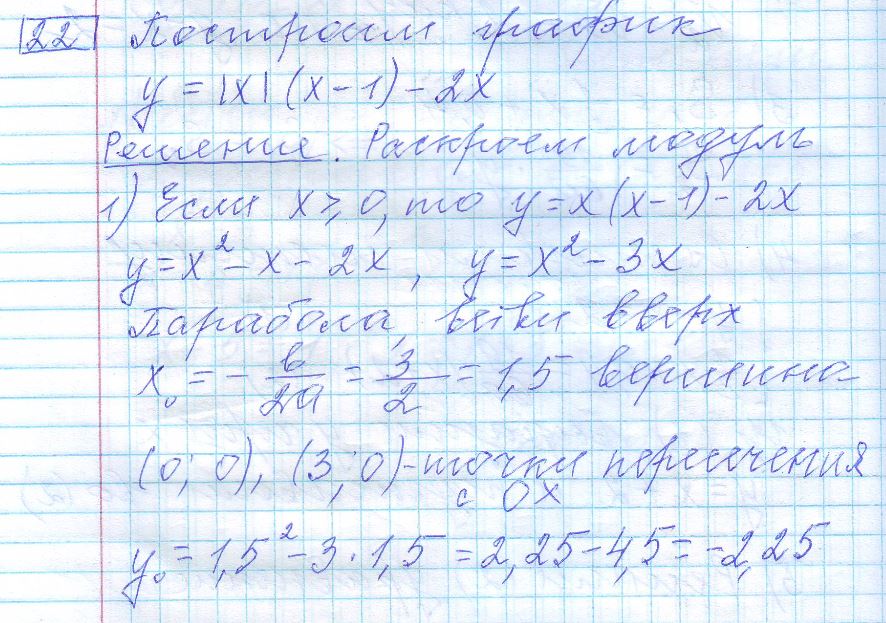 22 Построим график
y = |x|(x-1)-2x
Решение. Раскроем модуль
1) Если x ≥ 0, то y=x(x-1)-2x
y=x²-x-2x, y=x²-3x
Парабола, ветви вверх
x₀ = -b/2a = 3/2 = 1,5 вершина
(0; 0), (3; 0)-точки пересечения
с OX
y₀ = 1,5² - 3·1,5 = 2,25-4,5 = -2,25